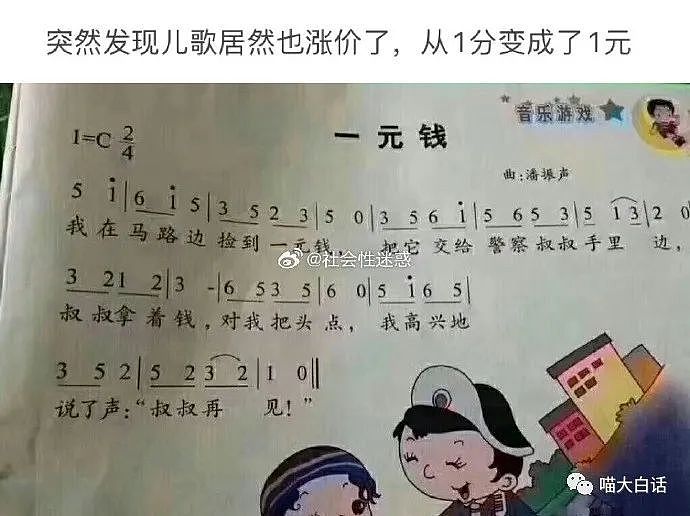 突然发现儿歌居然也涨价了，从1分变成了1元
音乐游戏
1=C 2/4
一元钱
曲:潘振声
5 i|6 i 5|3 5 2 3|5 0|3 5 6 i|5 6 5 3|5 1 3|2 0
我在马路边捡到一元钱，把它交给警察叔叔手里边，
@社会性迷惑
3 2 1 2|3 -|6 5 3 5|6 0|5 i 6 5|
叔叔拿着钱,对我把头点，我高兴地
3 5 2|5 2 3 2|1 0‖
说了声:“叔叔再见!”
喵大白话